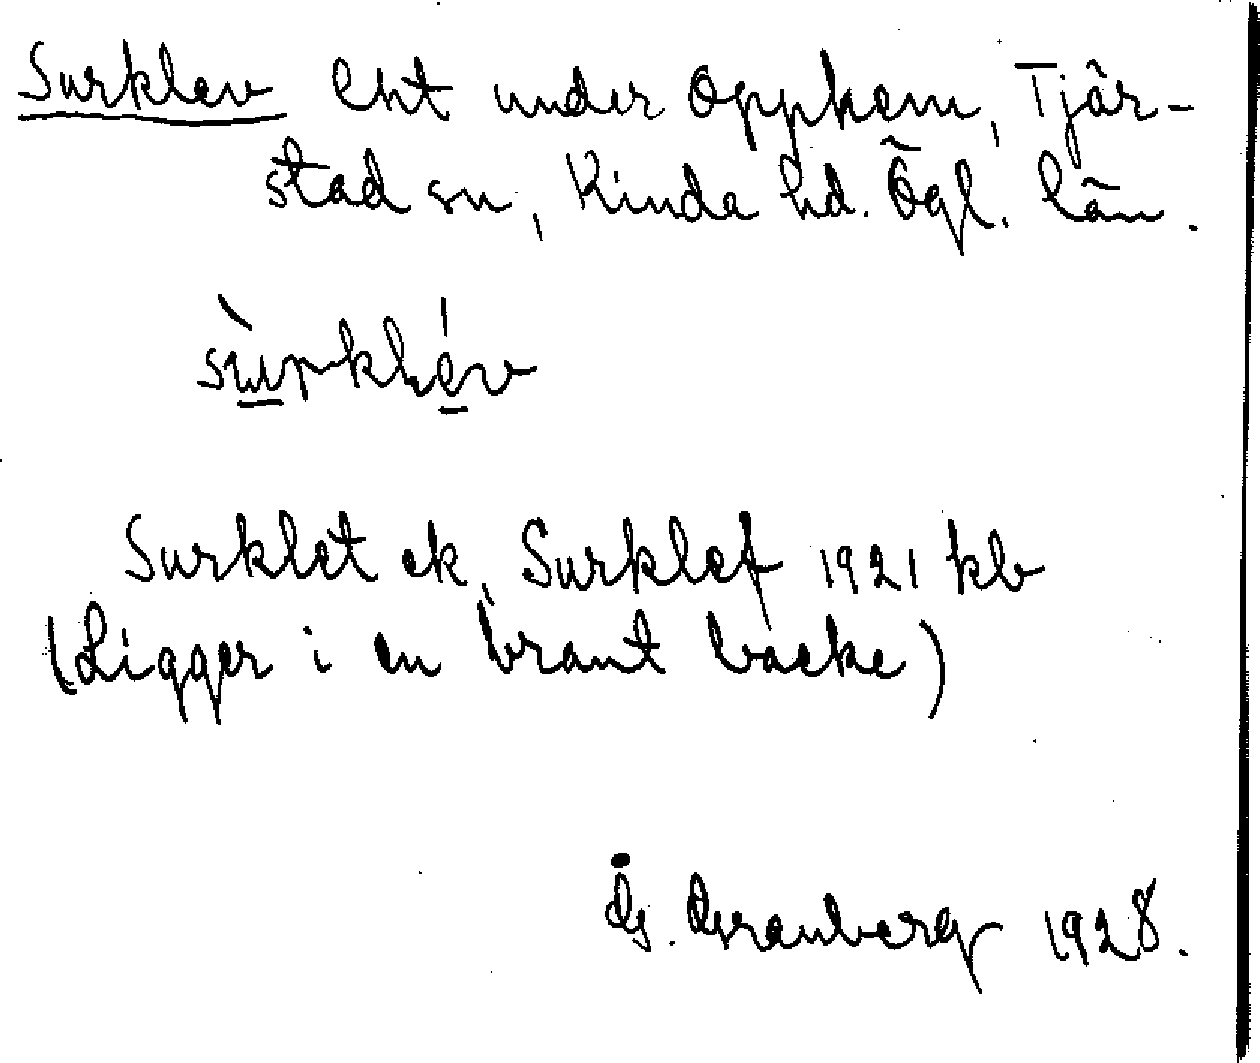 Surklev lht under Opphem, Tjär-
stad sn, Kinda hd. Ögl. län.
sùrklév
Surklet ek, Surklef 1921 kb
(Ligger i en brant backe)
G. Granberg 1928.